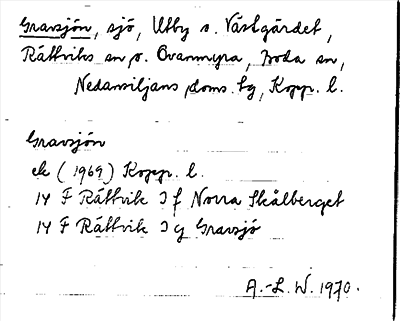 Gravsjön, sjö, Utby o. Västgärdet,
Rättviks sn o. Ovanmyra, Boda sn,
Nedansiljans doms. tg, Kopp. l.
Gravsjön
ek (1969) Kopp. l.
14 F Rättvik 3 f Norra Skålberget
14 F Rättvik 3 g Gravsjö
A.-L. W. 1970.